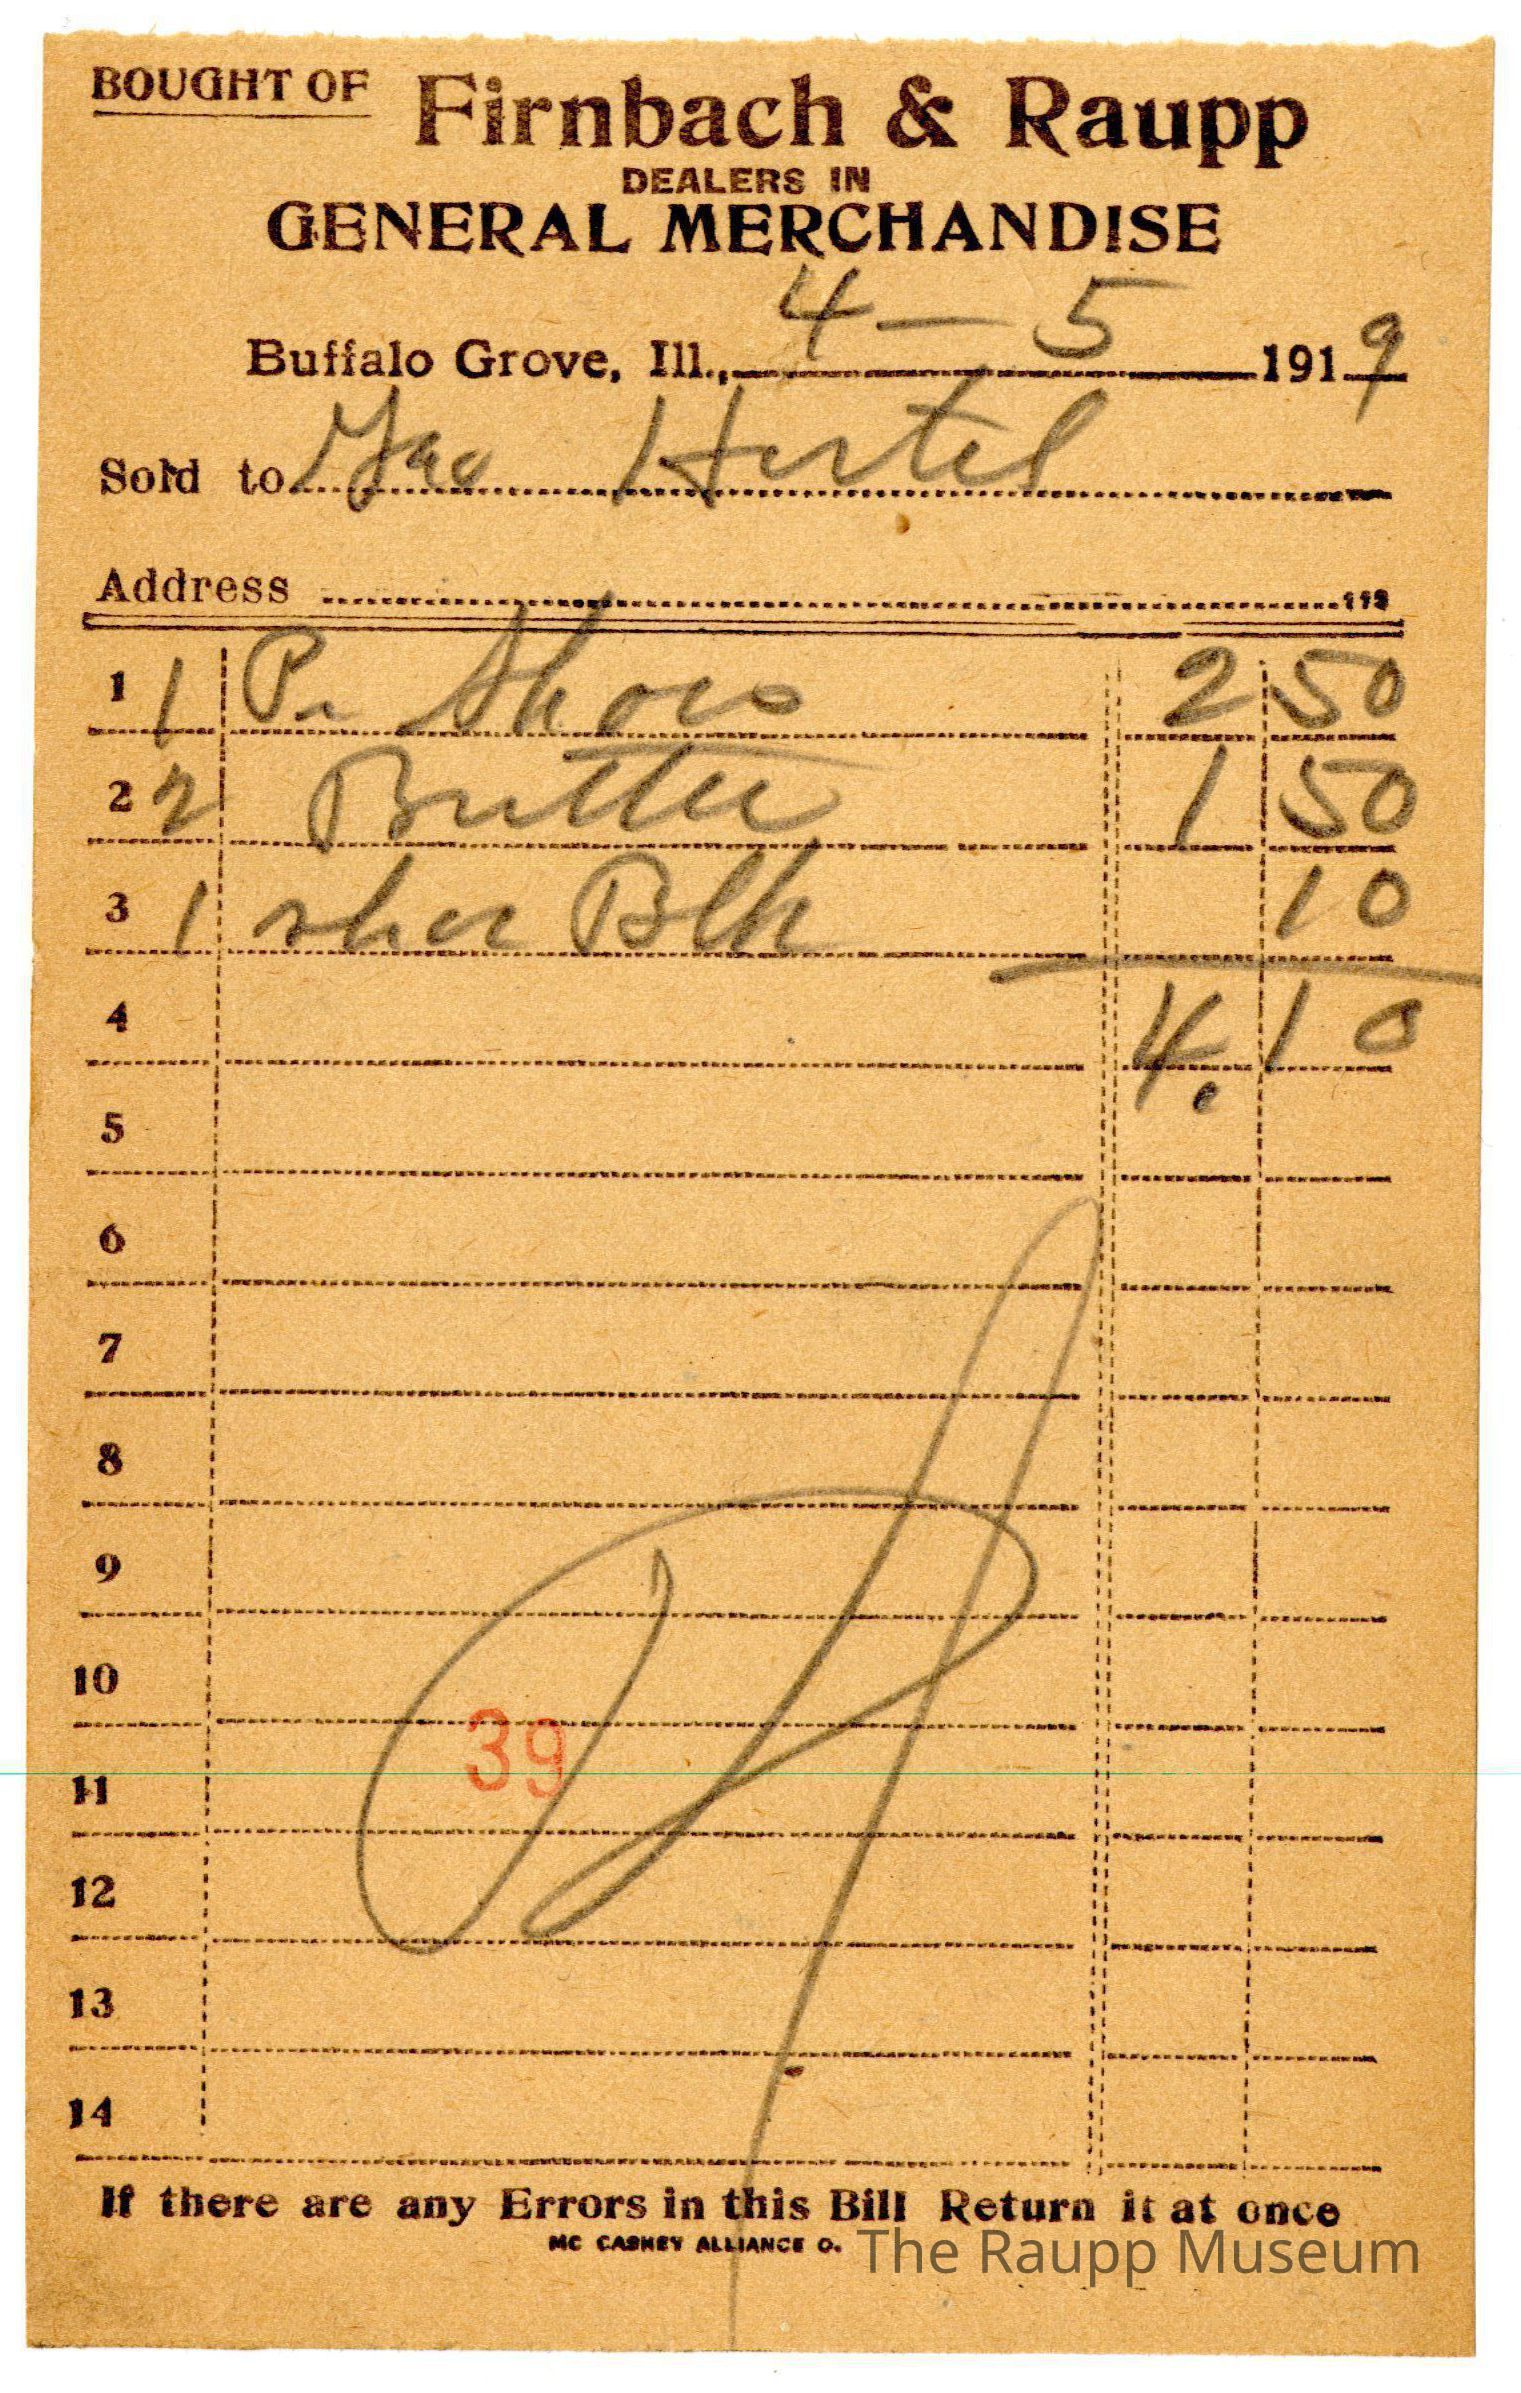 BOUGHT OF Firnbach & Raupp
DEALERS IN
GENERAL MERCHANDISE
Buffalo Grove, Ill., 4 — 5 1919
Sold to Hertel
Address
1 1 Pr Shoes 2 50
2 2 Butter 1 50
3 1 shoe Blk 10
4 4.10
5
6
7
8
9
10
39
11
12
13
14
If there are any Errors in this Bill Return it at once
MC CASKEY ALLIANCE O.
The Raupp Museum